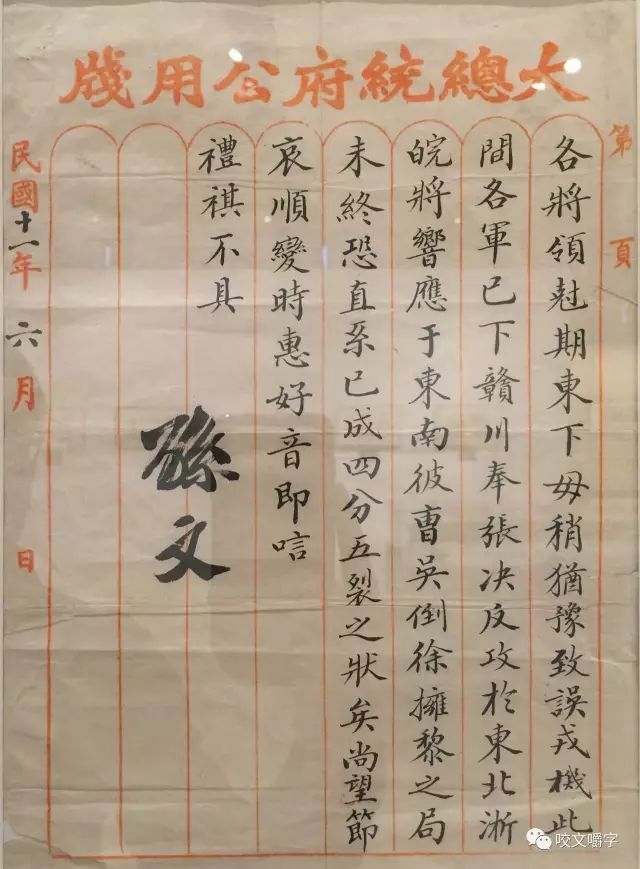 大總統府公用牋
第 頁
各將領尅期東下毋稍猶豫致誤戎機此
間各軍已下贛川奉張决反攻於東北浙
皖將響應于東南彼曹吳倒徐擁黎之局
未終恐直系已成四分五裂之狀矣尚望節
哀順變時惠好音即唁
禮祺不具
孫文
民國十一年六月 日
咬文嚼字